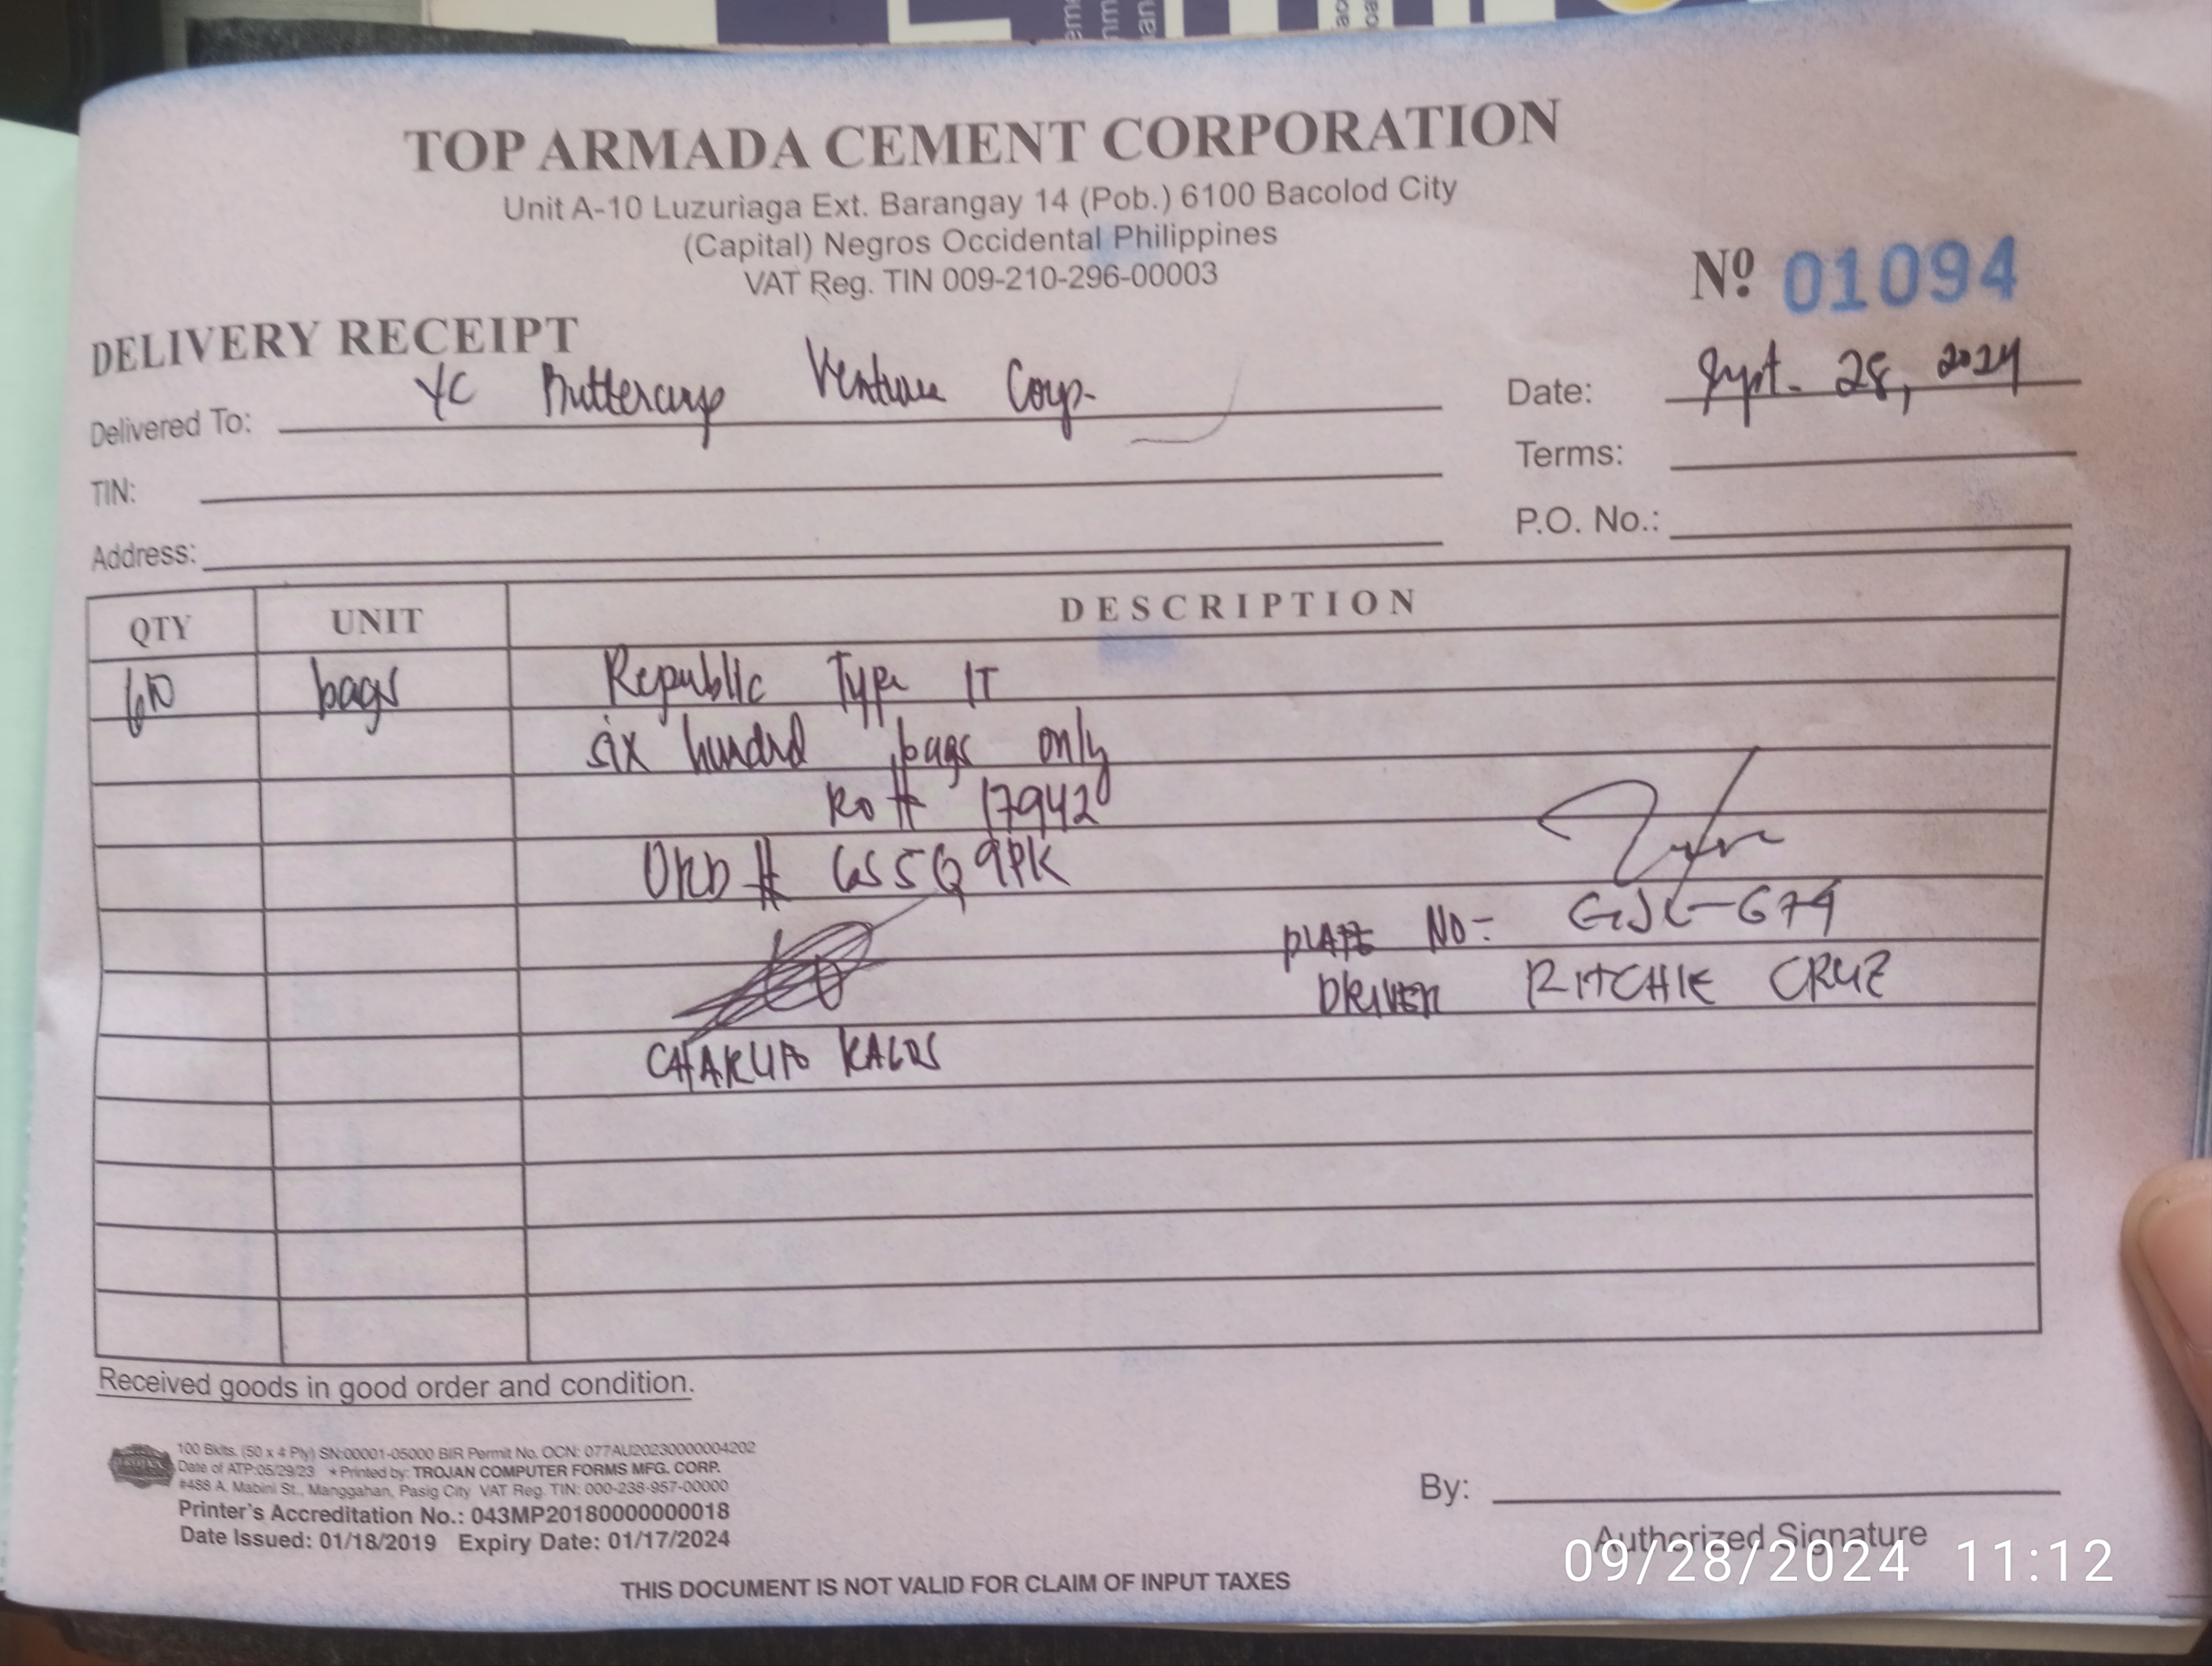 TOP ARMADA CEMENT CORPORATION
Unit A-10 Luzuriaga Ext. Barangay 14 (Pob.) 6100 Bacolod City
(Capital) Negros Occidental Philippines
VAT Reg. TIN 009-210-296-00003
Nº 01094
DELIVERY RECEIPT
Delivered To: YC Buttercup Venture Corp.
Date: Sept. 28, 2024
TIN:
Terms:
Address:
P.O. No.:
QTY UNIT DESCRIPTION
600 bags Republic Type 1T
six hundrd bags only
17942
PLATE NO-
DRIVER RITCHIE CRUZ
Received goods in good order and condition.
100 Bklts. (50 x 4 Ply) SN:00001-05000 BIR Permit No. OCN: 077AU20230000004202
Date of ATP:05/29/23 * Printed by: TROJAN COMPUTER FORMS MFG. CORP.
#488 A. Mabini St., Manggahan, Pasig City VAT Reg. TIN: 000-238-957-00000
Printer's Accreditation No.: 043MP20180000000018
Date Issued: 01/18/2019 Expiry Date: 01/17/2024
By:
Authorized Signature
09/28/2024 11:12
THIS DOCUMENT IS NOT VALID FOR CLAIM OF INPUT TAXES